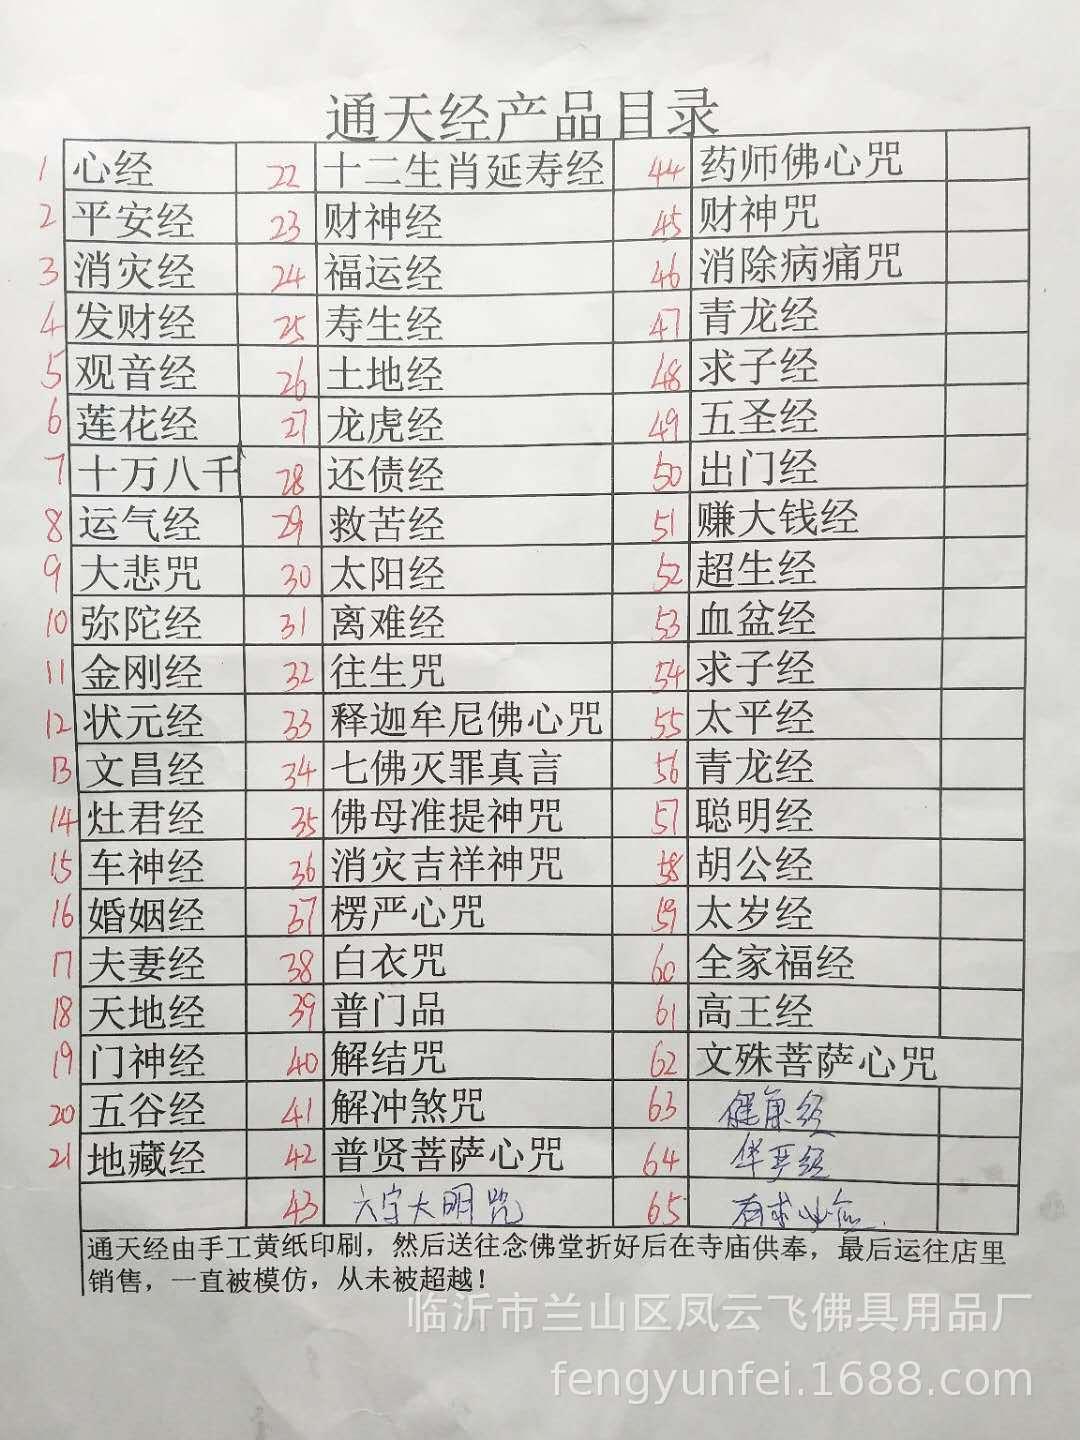 通天经产品目录
1 心经 22 十二生肖延寿经 44 药师佛心咒
2 平安经 23 财神经 45 财神咒
3 消灾经 24 福运经 46 消除病痛咒
4 发财经 25 寿生经 47 青龙经
5 观音经 26 土地经 48 求子经
6 莲花经 27 龙虎经 49 五圣经
7 十万八千 28 还债经 50 出门经
8 运气经 29 救苦经 51 赚大钱经
9 大悲咒 30 太阳经 52 超生经
10 弥陀经 31 离难经 53 血盆经
11 金刚经 32 往生咒 54 求子经
12 状元经 33 释迦牟尼佛心咒 55 太平经
13 文昌经 34 七佛灭罪真言 56 青龙经
14 灶君经 35 佛母准提神咒 57 聪明经
15 车神经 36 消灾吉祥神咒 58 胡公经
16 婚姻经 37 楞严心咒 59 太岁经
17 夫妻经 38 白衣咒 60 全家福经
18 天地经 39 普门品 61 高王经
19 门神经 40 解结咒 62 文殊菩萨心咒
20 五谷经 41 解冲煞咒 63 健康经
21 地藏经 42 普贤菩萨心咒 64 华严经
43 六字大明咒 65 有求必应.
通天经由手工黄纸印刷，然后送往念佛堂折好后在寺庙供奉，最后运往店里
销售，一直被模仿，从未被超越！
临沂市兰山区凤云飞佛具用品厂
fengyunfei.1688.com